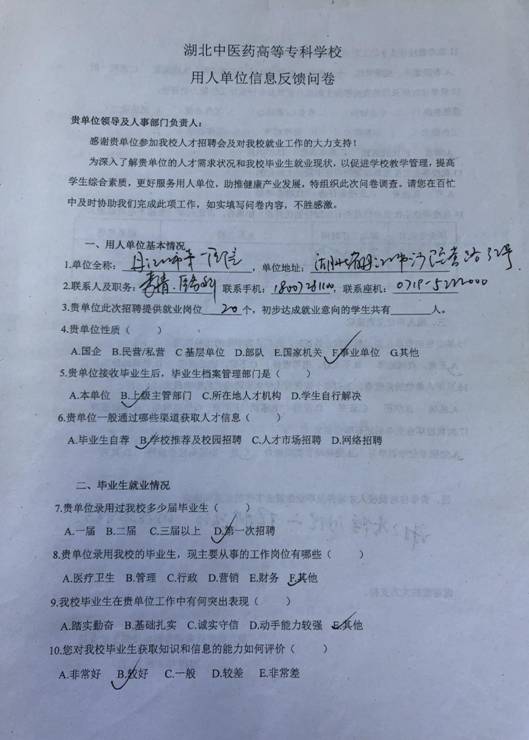 湖北中医药高等专科学校
用人单位信息反馈问卷
贵单位领导及人事部门负责人：
感谢贵单位参加我校人才招聘会及对我校就业工作的大力支持！
为深入了解贵单位的人才需求状况和我校毕业生就业现状，以促进学校教学管理，提高
学生综合素质，更好服务用人单位，助推健康产业发展，特组织此次问卷调查。请您在百忙
中及时协助我们完成此项工作，如实填写问卷内容，不胜感激。
一、用人单位基本情况
1.单位全称：丹江口市第一医院，单位地址：湖北省丹江口市
2.联系人及职务：联系手机：联系座机：
3.贵单位此次招聘提供就业岗位 20 个，初步达成就业意向的学生共有 人。
4.贵单位性质（ ）
A.国企 B.民营/私营 C 基层单位 D.部队 E.国家机关 F.事业单位 G.其他
5.贵单位接收毕业生后，毕业生档案管理部门是（ ）
A.本单位 B.上级主管部门 C.所在地人才机构 D.学生自行解决
6.贵单位一般通过哪些渠道获取人才信息（ ）
A.毕业生自荐 B.学校推荐及校园招聘 C.人才市场招聘 D.网络招聘
二、毕业生就业情况
7.贵单位录用过我校多少届毕业生（ ）
A.一届 B.二届 C.三届以上 D.第一次招聘
8.贵单位录用我校的毕业生，现主要从事的工作岗位有哪些（ ）
A.医疗卫生 B.管理 C.行政 D.营销 E.财务 F.其他
9.我校毕业生在贵单位工作中有何突出表现（ ）
A.踏实勤奋 B.基础扎实 C.诚实守信 D.动手能力较强 E.其他
10.您对我校毕业生获取知识和信息的能力如何评价（ ）
A.非常好 B.较好 C.一般 D.较差 E.非常差